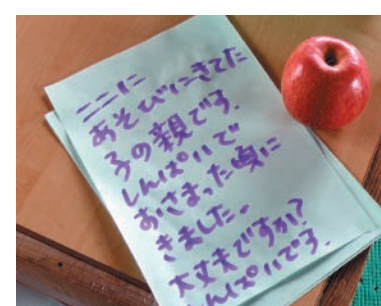 ここに
あそびにきてた
子の親です。
しんぱいで
おさまった頃に
きました。
大丈夫ですか?
しんぱいです。